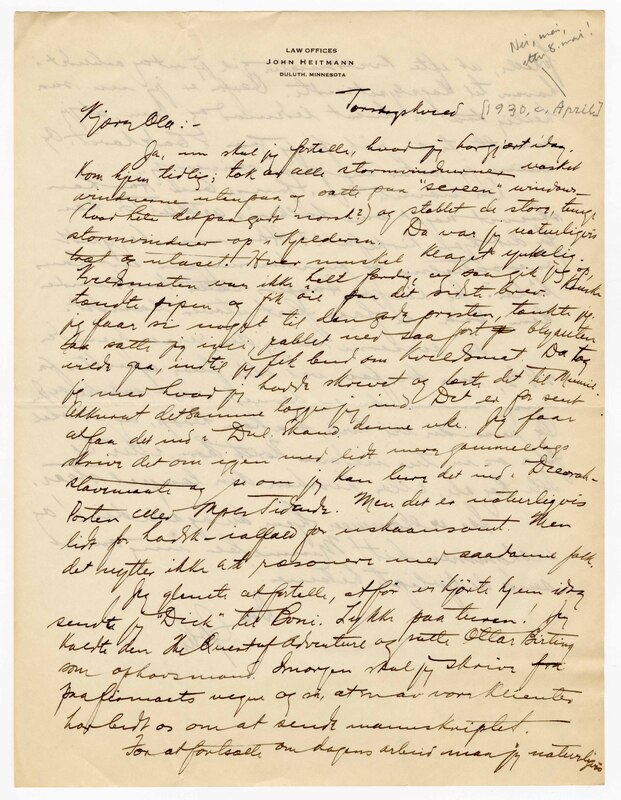 Nei, mai,
etter 8. mai!
LAW OFFICES
JOHN HEITMANN
DULUTH, MINNESOTA
Torsdagskveld [1930, c. April]
Kjære Ola:-
Ja, nu skal jeg fortelle, hvad jeg har gjort idag.
Kom hjem tidlig; tok av alle stormvinduerne, vasket
vinduerne utenpaa og satte paa "screen" windows
(hvad heter det paa godt norsk?) og stablet de store, tunge
stormvinduer op i kjelderen. Da var jeg naturligvis
træt og utaset! Hver muskel klaget ynkelig.
Kveldsmaten var ikke helt færdig, og saa gik jeg op,
tændte pipen og fik øie paa det sidste brev. Kanske
jeg faar si noget til den gode presten, tænkte jeg.
Saa satte jeg mig, rablet ned saa fort blyanten
vilde gaa, indtil jeg fek bud om kveldsmat. Da tog
jeg med hvad jeg hadde skrevet og læste det til Minnie.
Akkurat det samme lægger jeg ind. Det er for sent
at faa det ind i Dul. Skand. denne uke. Jeg faar
skrive det om igjen med lidt mere gammeldags
og se om jeg kan lure det ind i Decorah-
Posten eller Mpls Tidende. Men det er naturligvis
lidt for hardt - ialfald for uskaansomt. Men
det nytter ikke at resonere med saadanne folk.
Jeg glemte at fortelle, at før vi kjørte hjem idag
sendte jeg "Dick" til Boni. Lykke paa turen! Jeg
kaldte den The Quest of Adventure og satte Ottar Birting
som ophavsmand. Imorgen skal jeg skrive
paa firmaets vegne og si, at en av vore klienter
har bedt os om at sende manuskriptet.
For at fortsætte om dagens arbeid maa jeg naturligvis